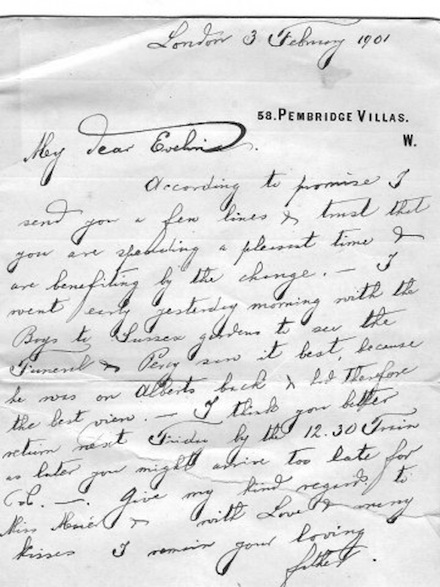 London 3 February 1901
58. PEMBRIDGE VILLAS.
W.
My dear Evelin.
According to promise I
send you a few lines & trust that
you are spending a pleasant time &
are benefiting by the change. — I
went early yesterday morning with the
Boys to Sussex gardens to see the
Funeral & Percy saw it best, because
he was on Alberts back & had therefore
the best view. — I think you better
return next Friday by the 12.30 Train
as later you might arrive too late for
— . Give my kind regards to
Miss & with Love & many
kisses I remain your loving
father.